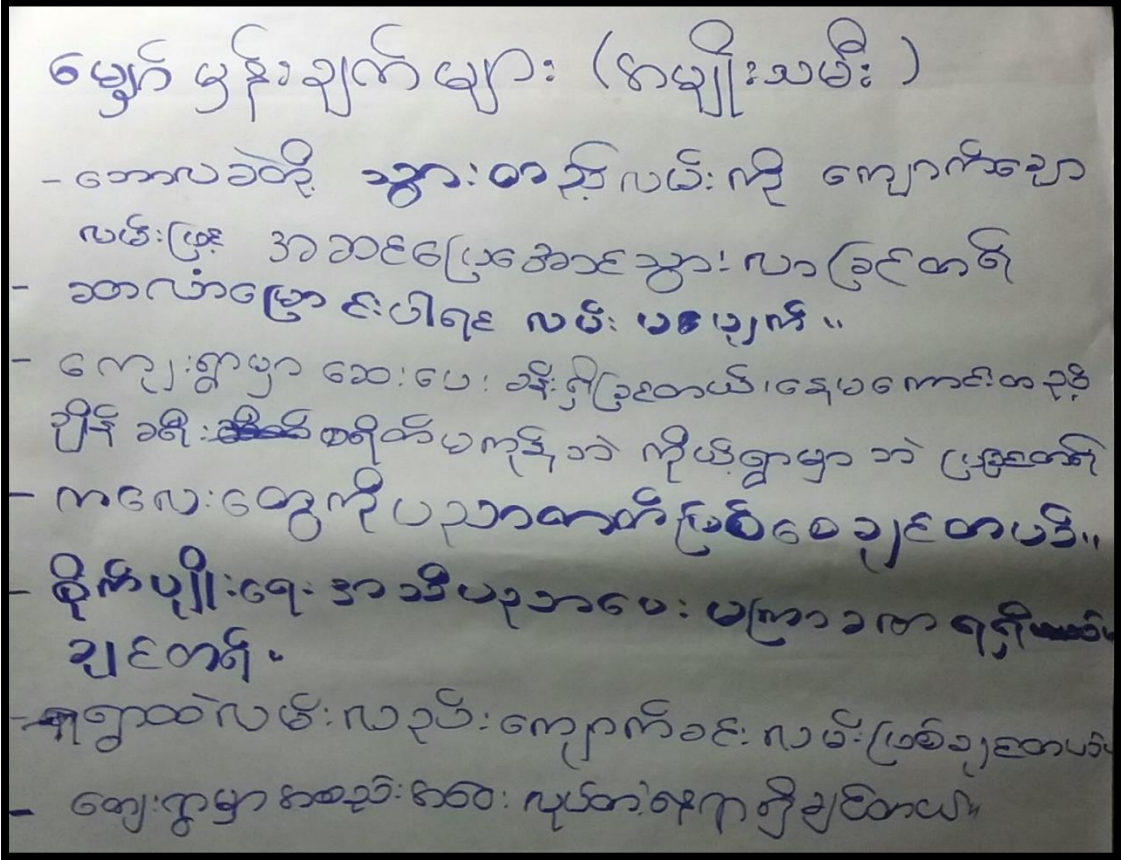 မျှော်မှန်းချက်များ (အမျိုးသမီး)
- ဘောလခဲတို့ သွားတည့်လမ်းကို ကျောက်ချော
လမ်းဖြင့် အဆင်ပြေအောင်သွားလာခြင်တရ်
- ဆတလံမြောင်းပါရင် လမ်း မပျက်။
- ကျေးရွာမှာ ဆေးပေးခန်းရှိခြင်တယ်၊ နေမကောင်းတဉ့်
ချိန် ခရီးစရိတ်မကုန်ဘဲ ကိုယ့်ရွာမှာဘဲ
- ကလေးတွေကိုပညာတတ်ဖြစ်စေချင်တပဒ်။
- စိုက်ပျိုးရေးအသိပညာပေး မကြာခဏရရှိ
ချင်တရ်။
- ရွာထဲလမ်းလဉ်းကျောက်ခင်းလမ်းဖြစ်ချင်တပဒ်
- ကျေးရွာမှာအစည်းအဝေး လုပ်တဲ့နေရာရှိချင်တယ်။